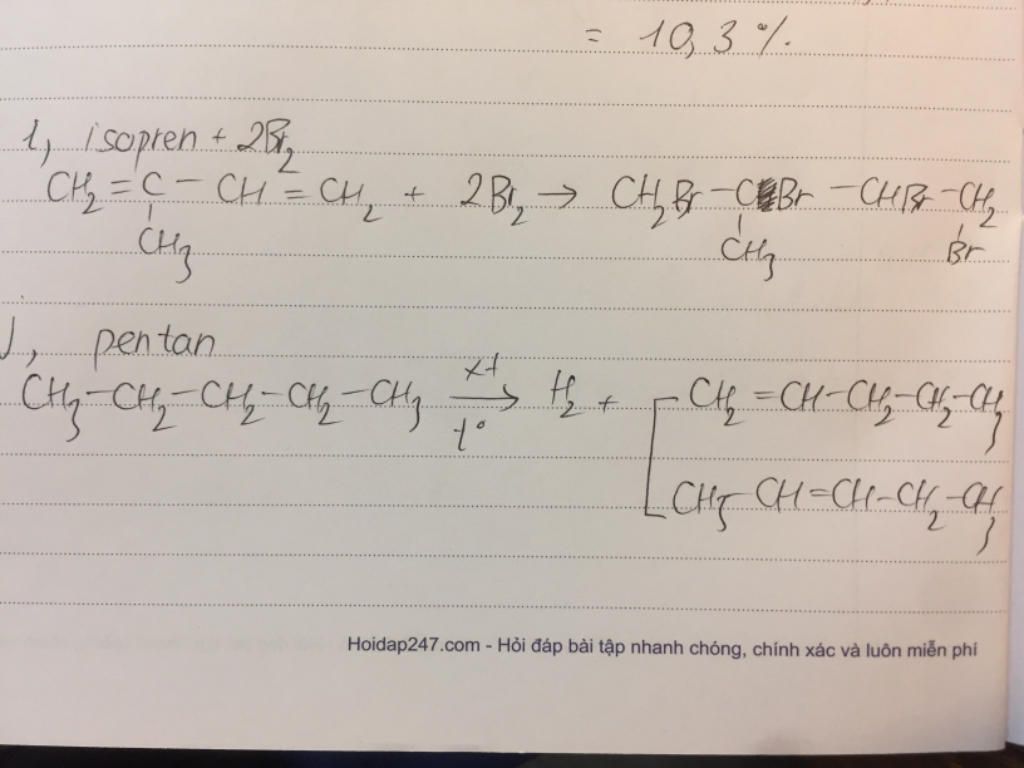 = 10,3 %.
i, isopren + 2Br2
CH2 = C - CH = CH2 + 2Br2 → CH2Br - CBr - CHBr - CH2
CH3 CH3 Br
j, pentan
CH3-CH2-CH2-CH2-CH3 xt t° → H2 + CH2=CH-CH2-CH2-CH3
CH3-CH=CH-CH2-CH3
Hoidap247.com - Hỏi đáp bài tập nhanh chóng, chính xác và luôn miễn phí